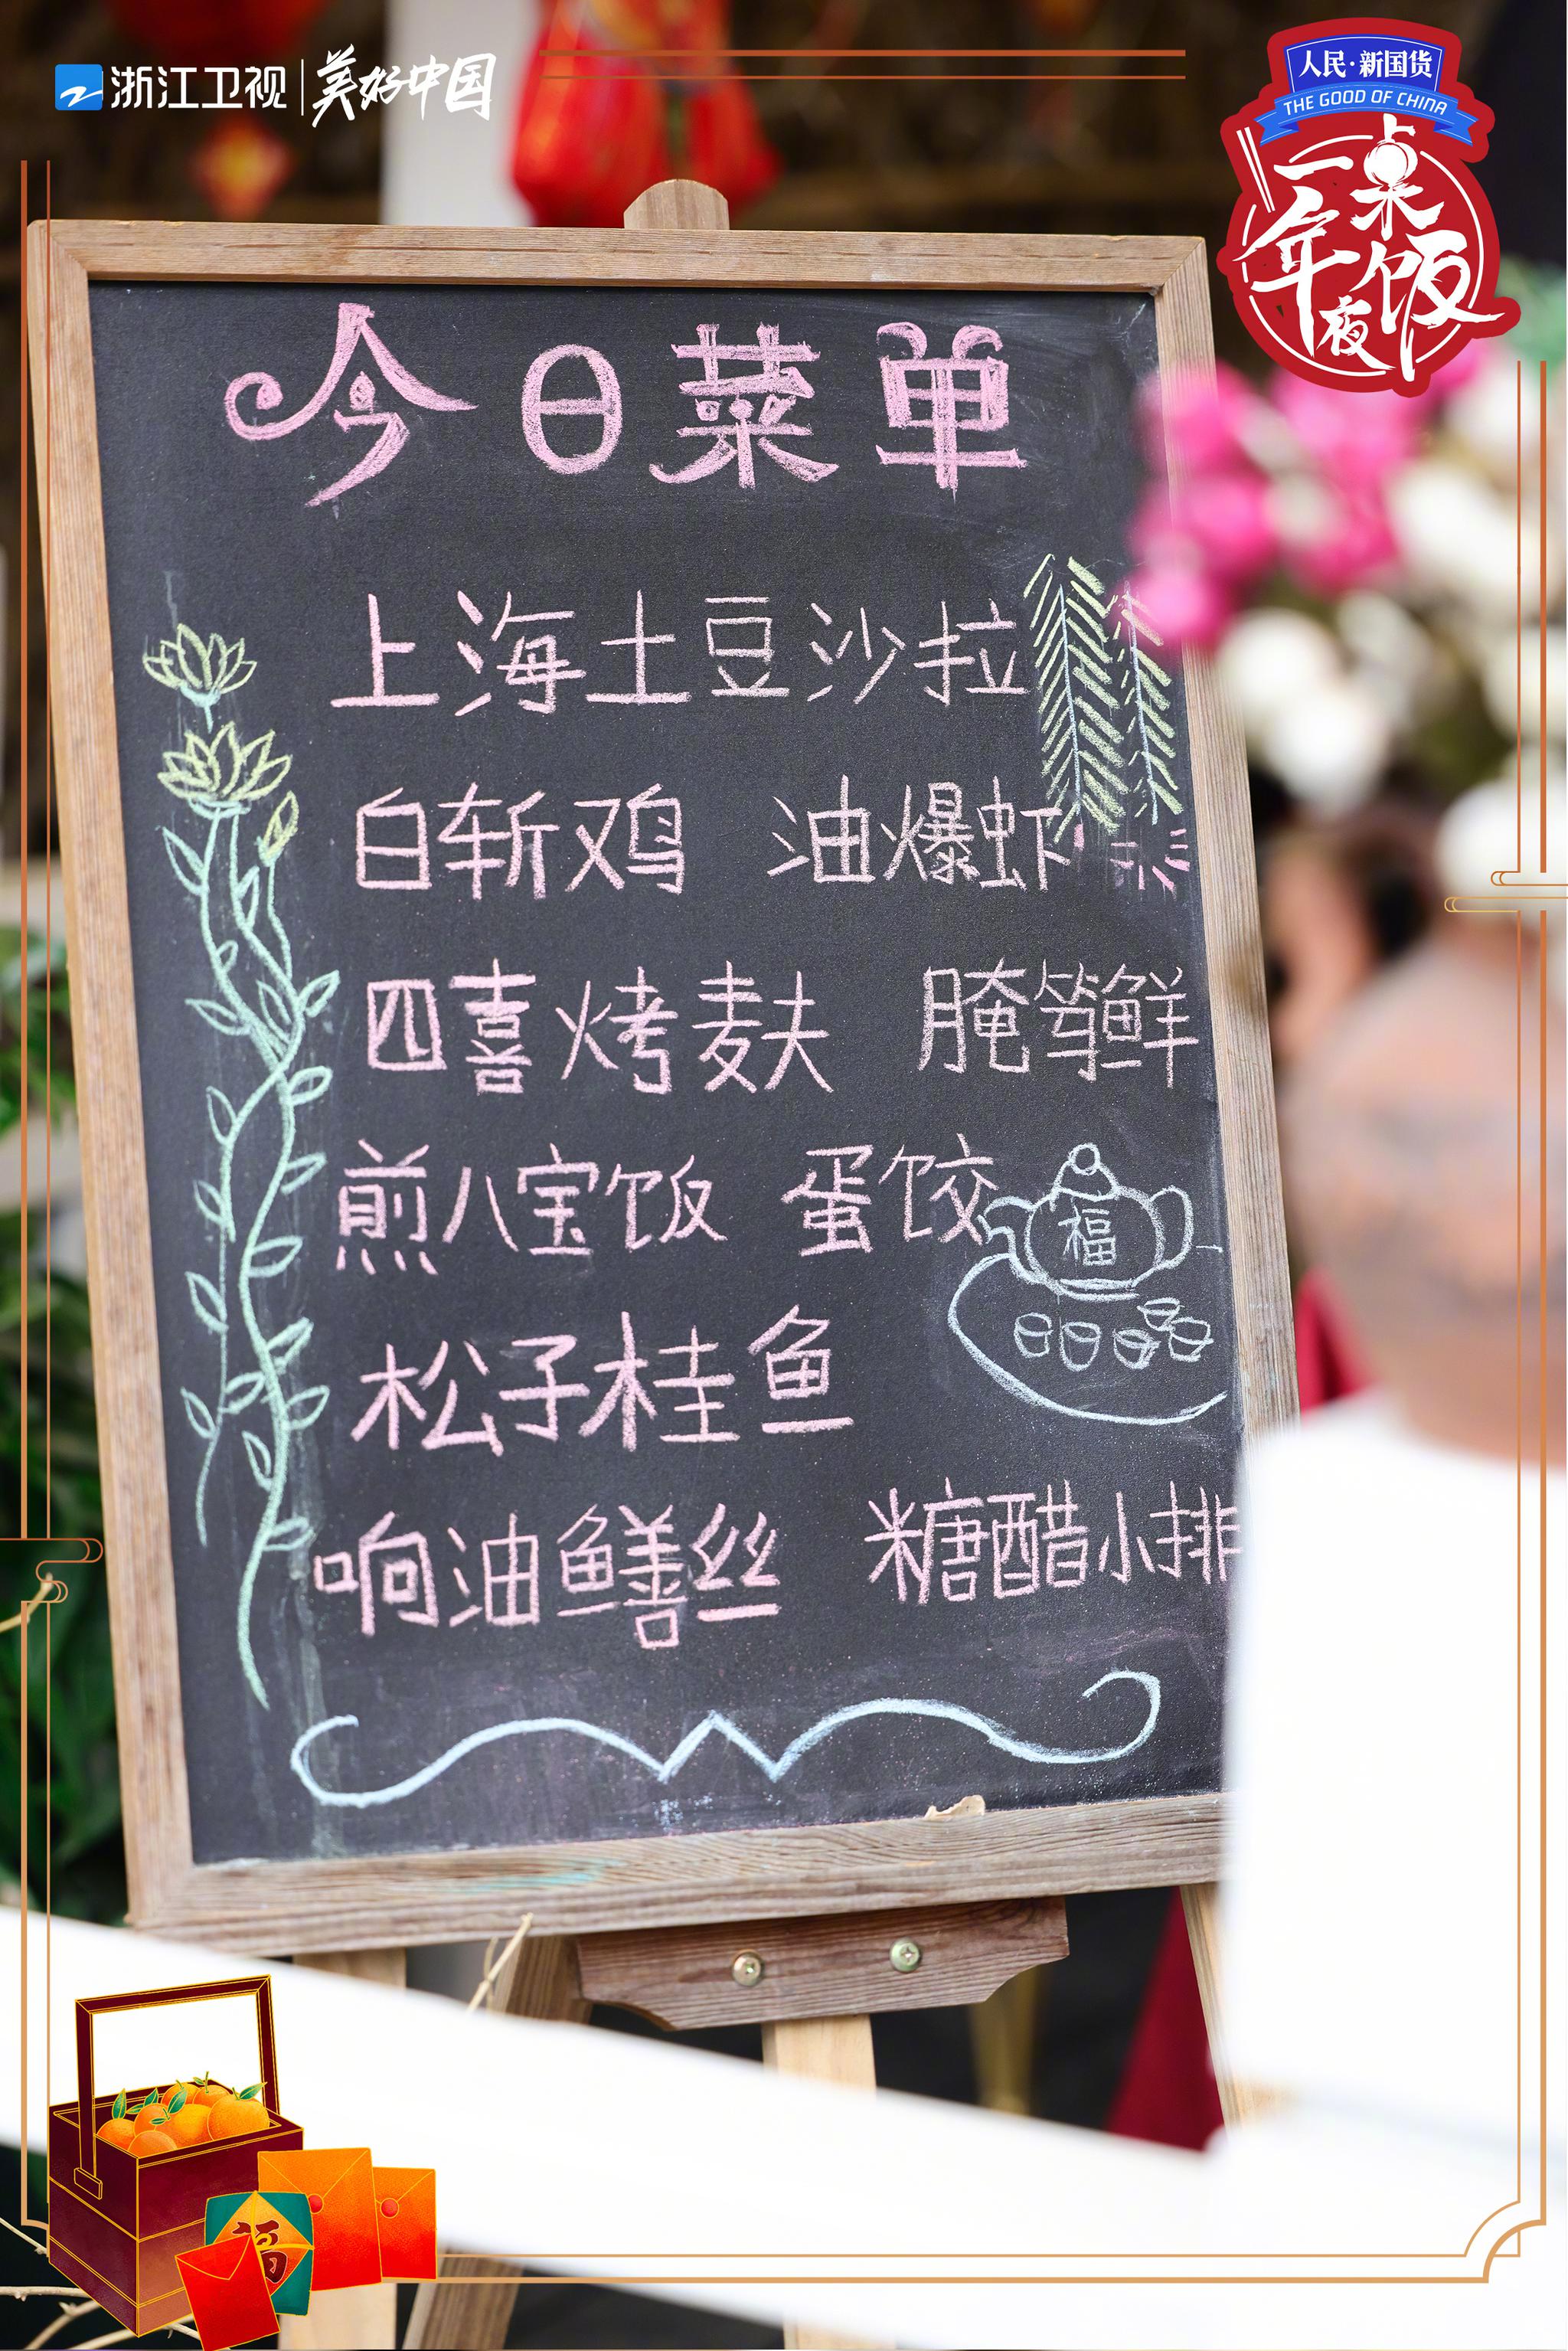 浙江卫视 美好中国
人民·新国货
THE GOOD OF CHINA
一桌
年夜饭
今日菜单
上海土豆沙拉
白斩鸡 油爆虾
四喜烤麸 腌笃鲜
煎八宝饭 蛋饺
福
松子桂鱼
响油鳝丝 糖醋小排
福